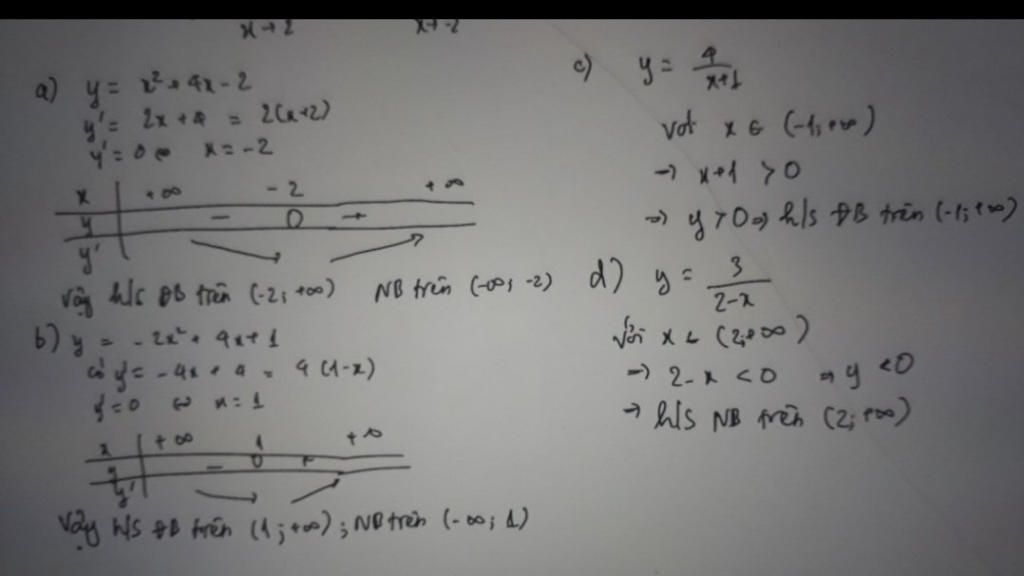 x→2 x→-2
a) y = x² + 4x - 2
y' = 2x + 4 = 2(x+2)
y' = 0 ⇔ x = -2
x +∞ -2 +∞
y - 0 +
y'
Vậy h/s ĐB trên (-2; +∞) NB trên (-∞; -2)
b) y = -2x² + 4x + 1
có y' = -4x + 4 = 4(1-x)
y' = 0 ⇔ x = 1
x +∞ 1 +∞
y - 0 +
y'
Vậy h/s ĐB trên (1; +∞); NB trên (-∞; 1)
c) y = 4/(x+1)
Với x ∈ (-1; +∞)
→ x+1 > 0
→ y > 0 → h/s ĐB trên (-1; +∞)
d) y = 3/(2-x)
Với x ∈ (2; +∞)
→ 2-x < 0 → y < 0
→ h/s NB trên (2; +∞)